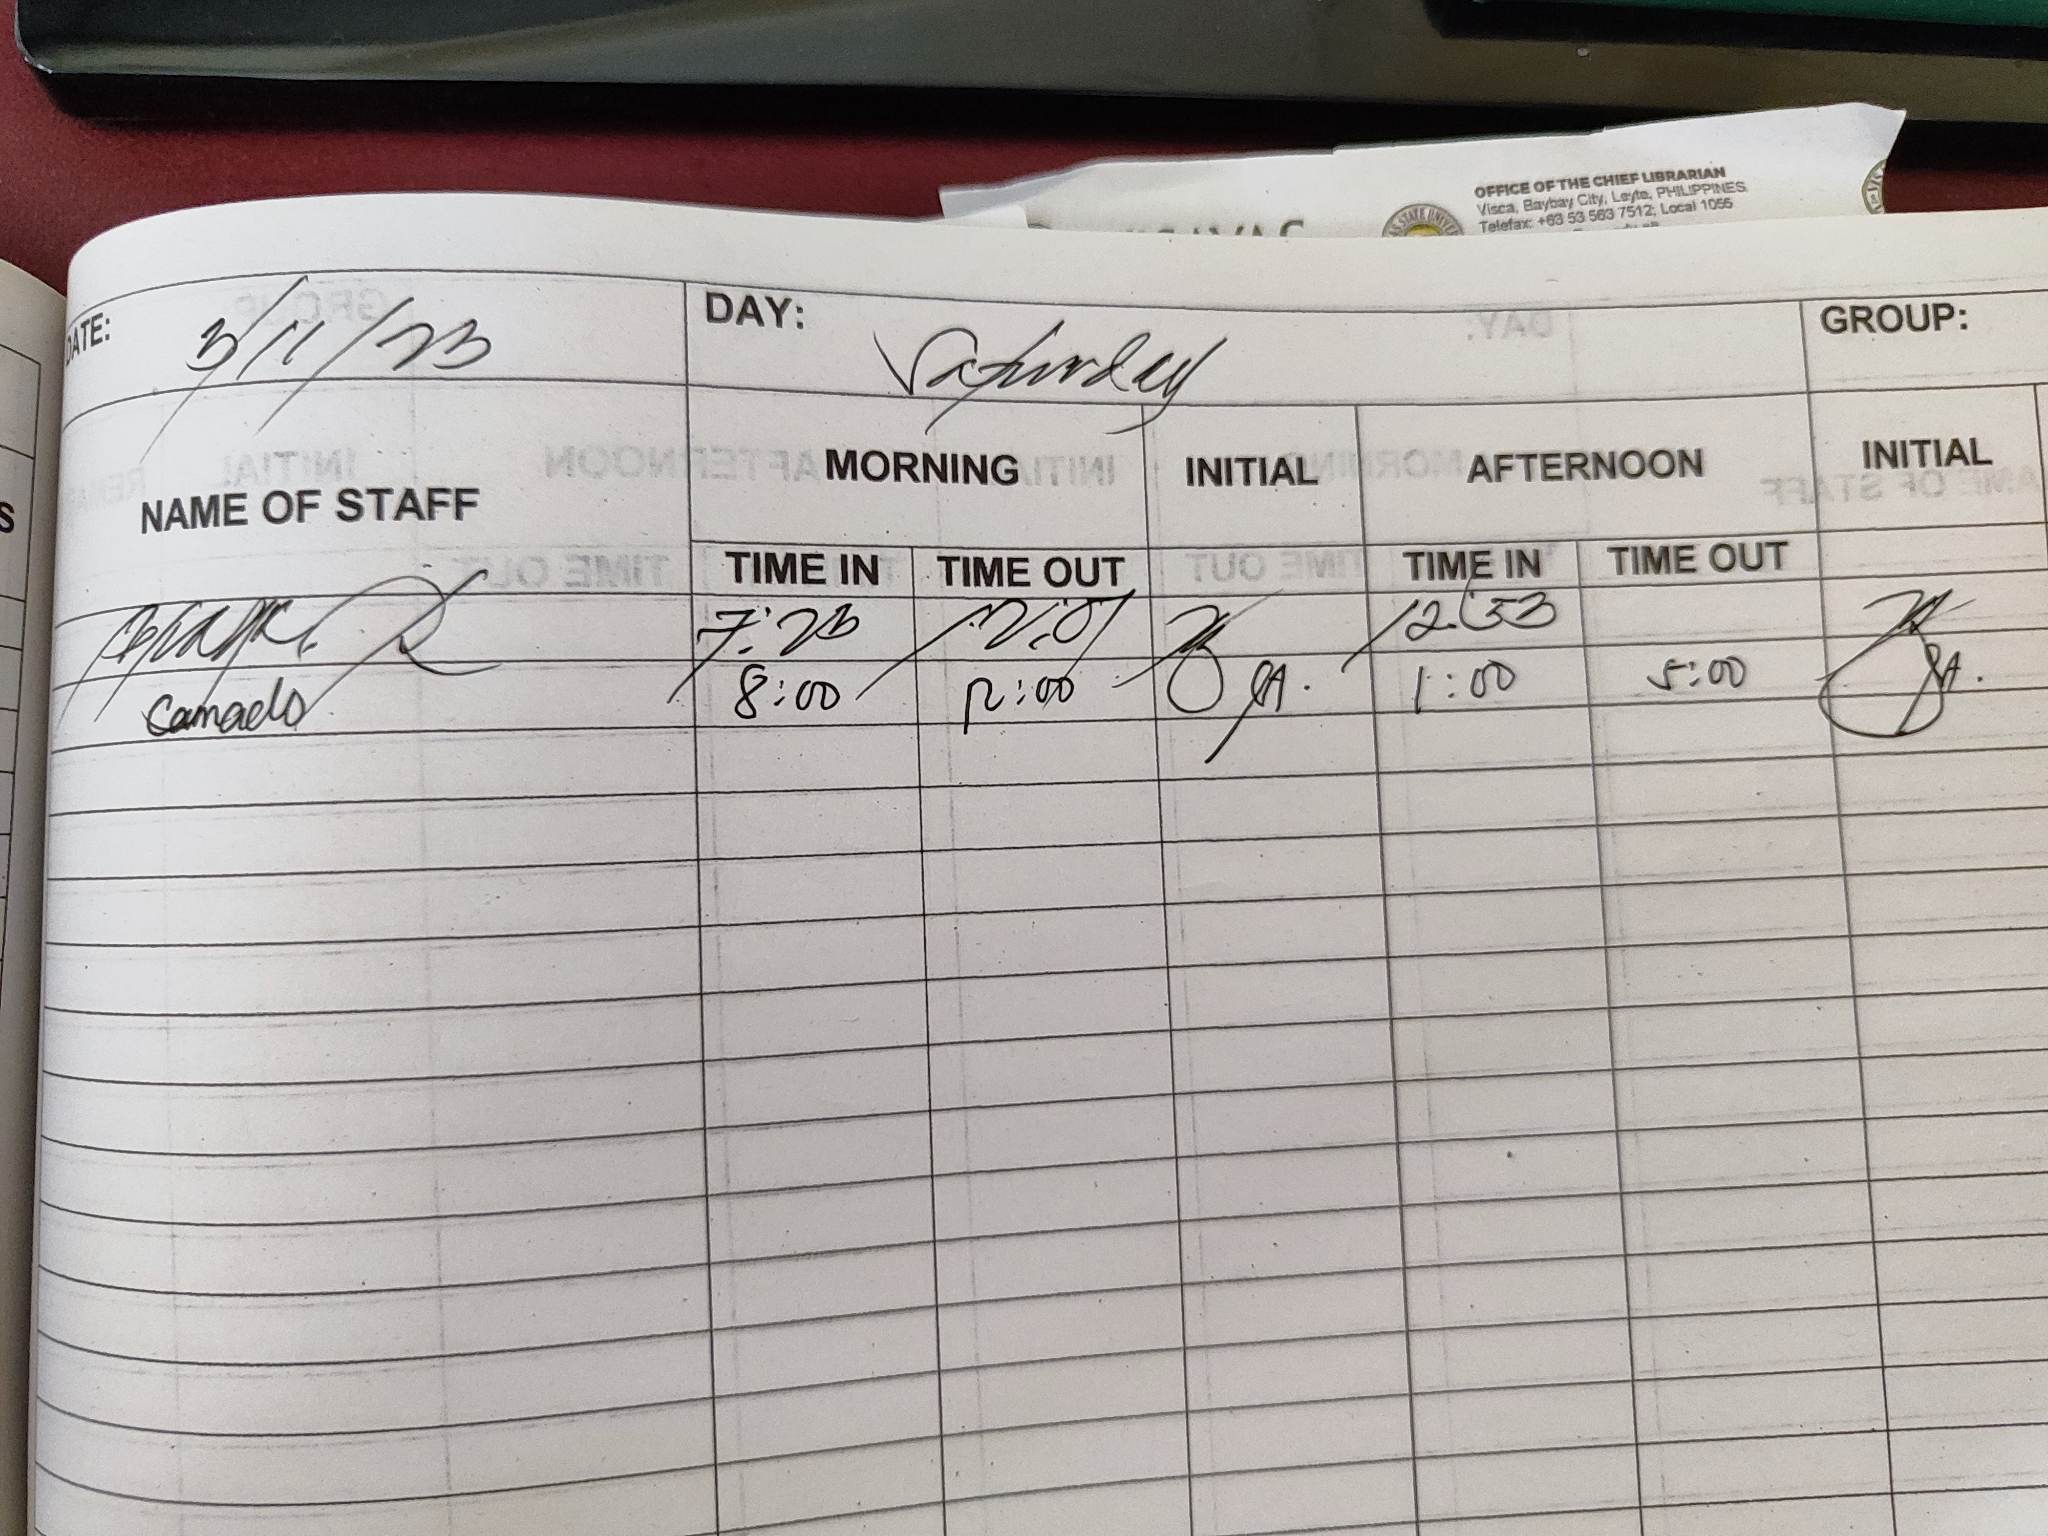 OFFICE OF THE CHIEF LIBRARIAN
Visca, Baybay City, Leyte, PHILIPPINES
Telefax: +63 53 563 7512; Local 1055
DATE: 3/11/23 DAY: Saturday GROUP:
NAME OF STAFF MORNING INITIAL AFTERNOON INITIAL
TIME IN TIME OUT TIME IN TIME OUT
7:23 12:01 12:53
Camado 8:00 12:00 1:00 5:00